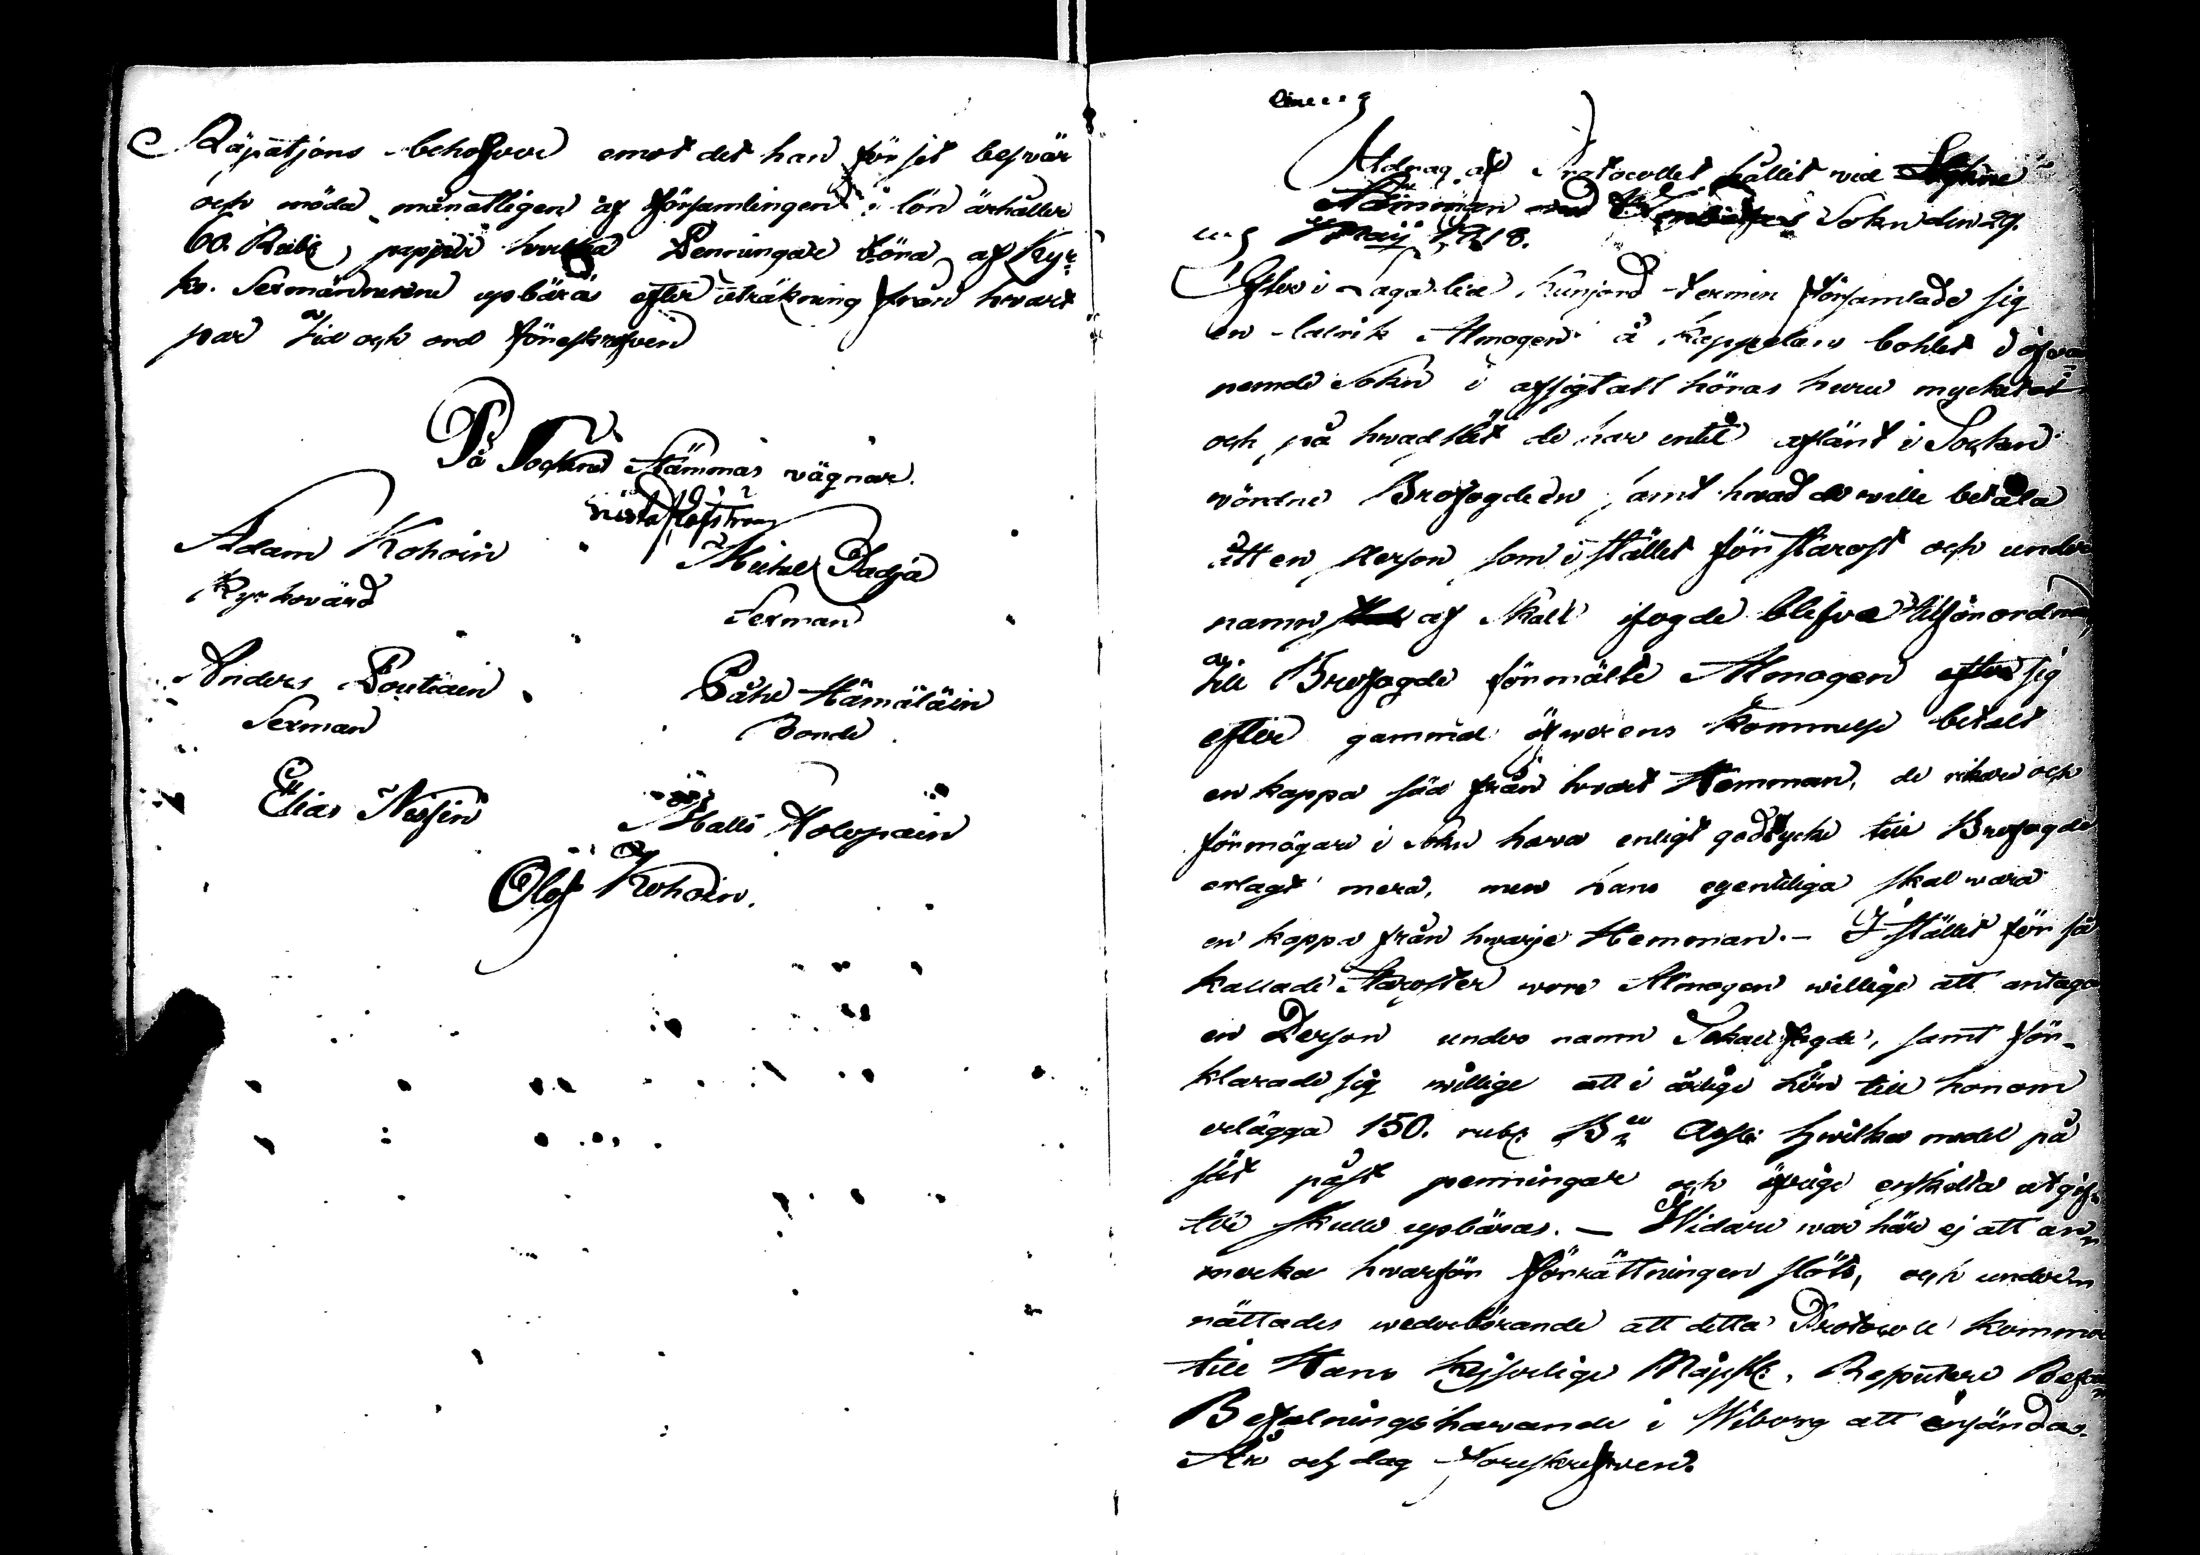 Räpatjons behofwer emot det han för sit besvär
och möda månatligen af församlingen i lön ärhåller
60. Rubl papper hvilka Penningar böra af Kyr-
ko. Sexmännerne upbäras efter uträkning från hvart
par Tid och ord föreskrefven
På Sockne Stämmas vägnar.
Adam Kohoin Michel Padja
Kyrkovärd Sexman
Anders Poutiain Påhl Hämäläin
Sexman Bonde
Elias Nissin Matts Holopain
Olof Kohoin.
Utdrag af Protocollet hållit vid
Sokn den 29.
Maij 1818.
Efter i Laga tid kungjord termin församlade sig
en talrik Almogen å Kappelans bohlet i ofvan
nemde Sokn i afsigt att höras huru mycket
och på hvad sät de har intil aflänt i Socken
wördne Brofogden, samt hvad de wille betala
åtten person som i stället för Starost och under
namn af Skall fogde blefve tilförordnad,
till Brofogde förmälte Almogen sig
efter gammal öfwerens kommelse betalt
en kappa säd från hvart Hemman, de rikare och
förmögare i Sokn hava enligt godtycke till Brofogde
erlagt mera, men hans egentliga skal wara
en kappa från hwarje Hemman. – I stället för så
kallade Staroster wore Almogen willige att antaga
en Person under namn Skall fogde, samt för-
klarade sig willige att i årlige Lön till honom
erlägga 150. rubl B Assi: hwilka medel på
sät påst penningar och öfrige enskilta utgif-
ter skulle upbäras. – Widare war här ej att an-
merka hvarför förrättningen slöts, och under-
rättades wederbörande att detta Protocoll komma
till Hans Kejserlige Majest:
Befalningshavande i Wiborg att insändas.
År och dag Föreskrefwen.